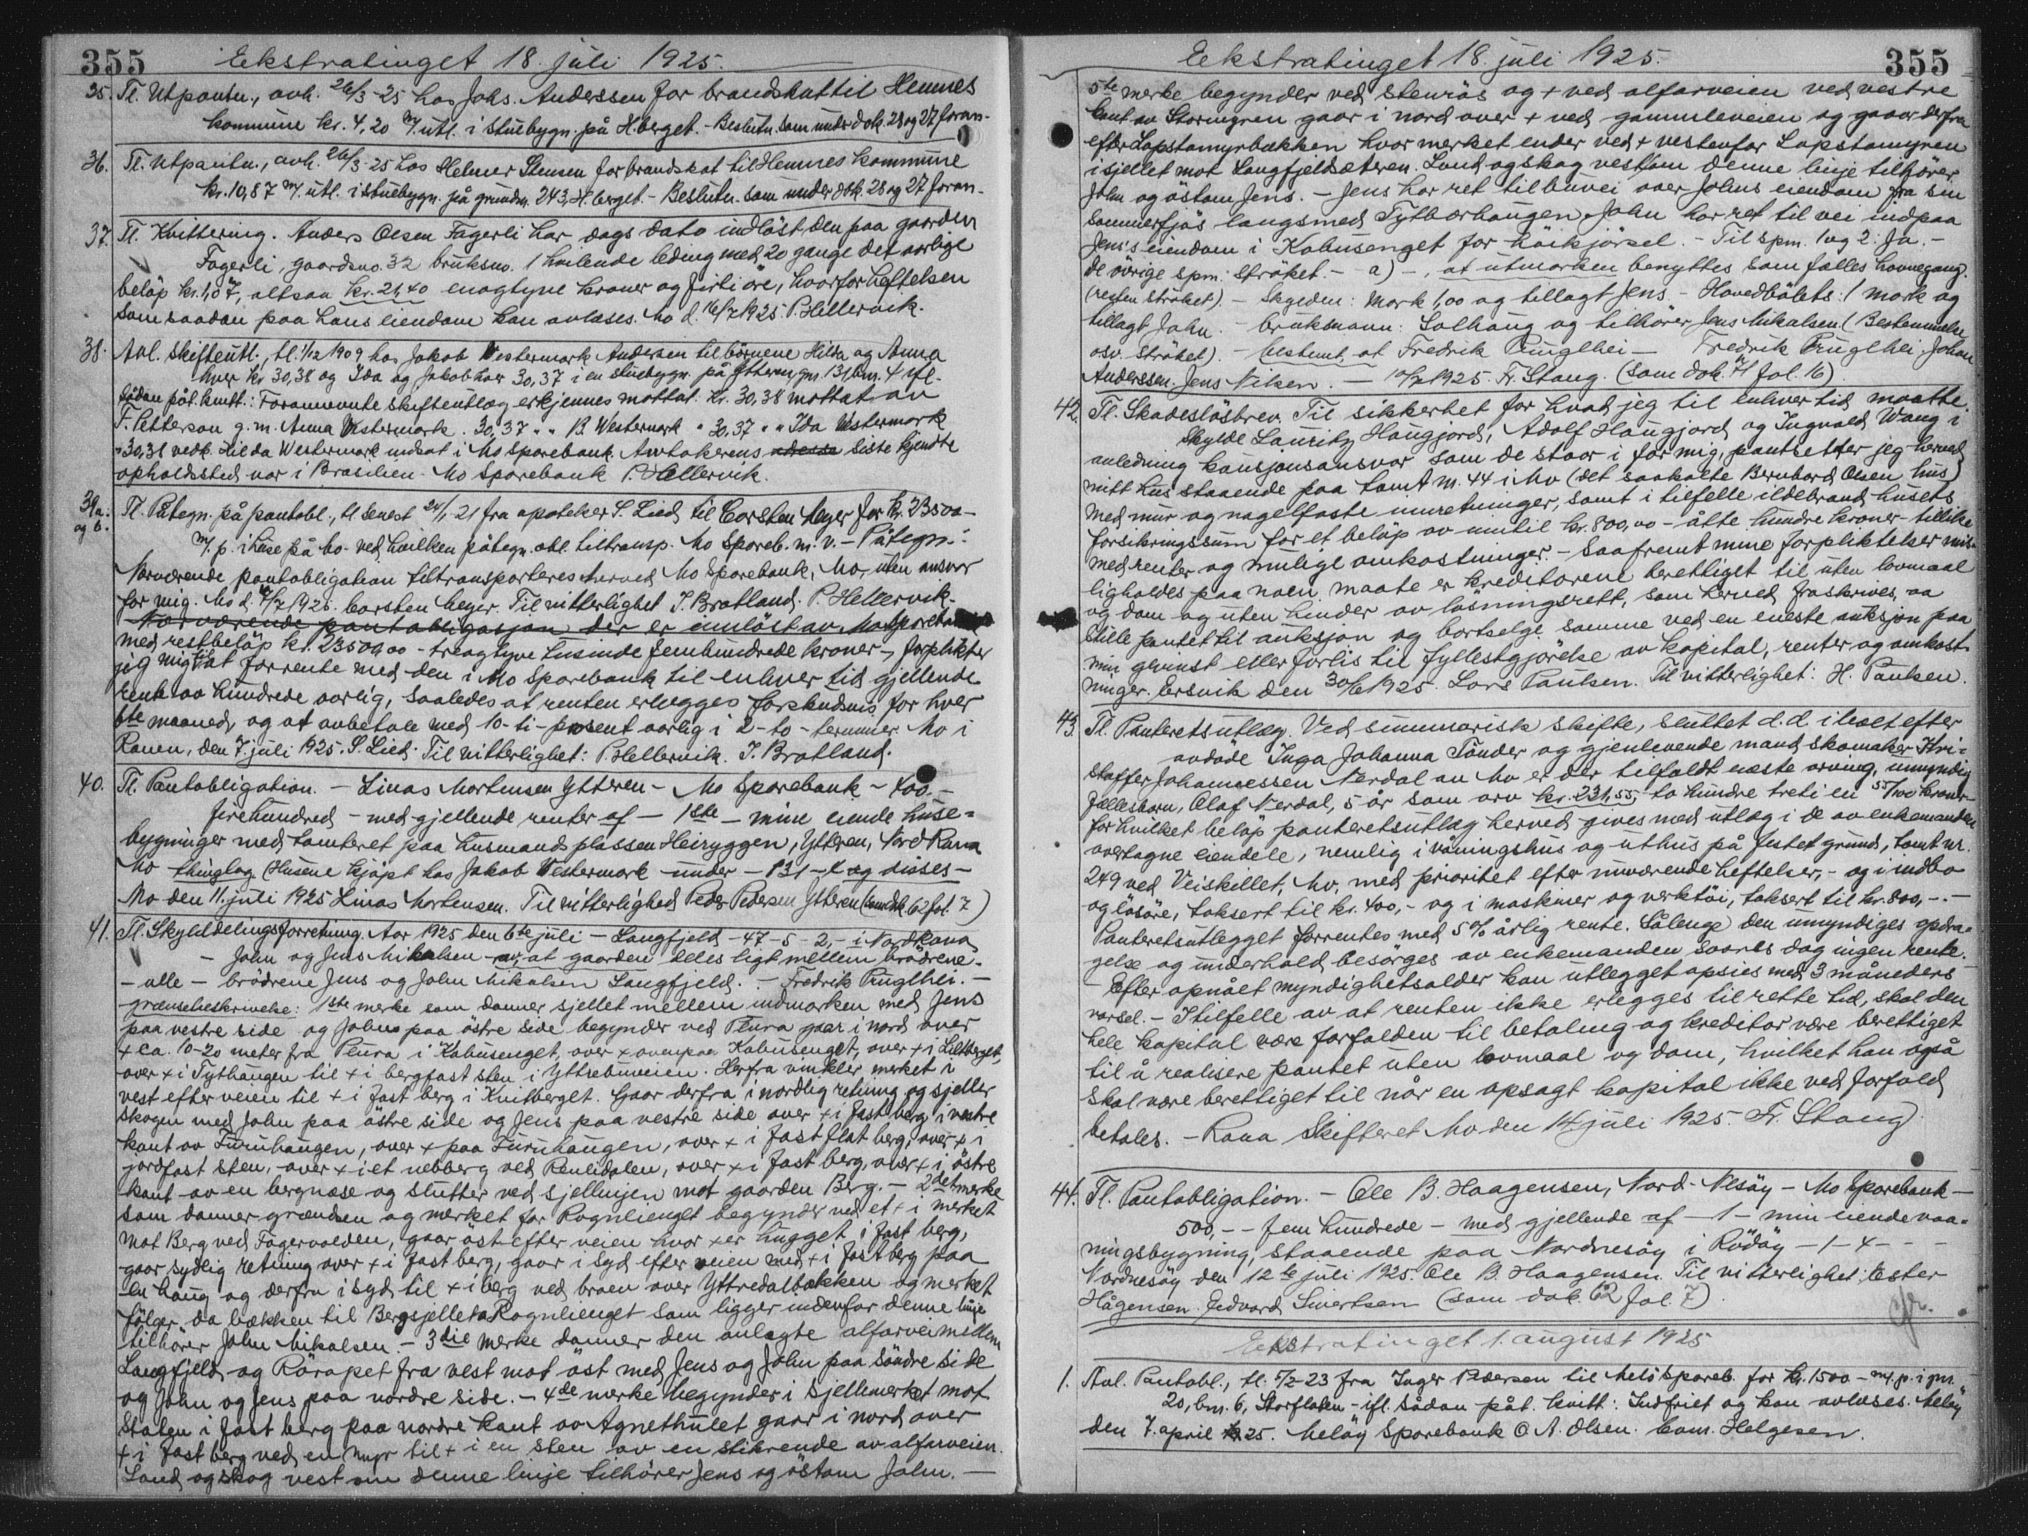 355
Ekstratinget 18. juli 1925.
35. Tl. Utpantn., avh. 26/3-25 hos Johs. Anderssen for brandskat til Hemnes
kommune kr. 4,20 m/ utl. i stuebygn. på H.berget. - Beslutn. som under dok. 28 og 27 foran.-
36. Tl. Utpantn., avh. 26/3-25 hos Helmer Stensen for brandskat til Hemnes kommune
kr. 10,87 m/ utl. i stuebygn. på grundn. 243, H.berget. - Beslutn. som under dok. 28 og 27 foran.-
37. Tl. Kvittering. Anders Olsen Fagerli har dags dato indløst den paa gaarden
Fagerli, gaardsno. 32 bruksno. 1 hvilende leding med 20 gange det aarlige
beløp kr. 1,07, altsaa kr. 21,40 enogtyve kroner og firti øre, hvorfor heftelsen
som saadan paa hans eiendom kan avlæses. Mo d. 16/7 1925. P. Hellervik.
38. Avl. Skifteutl., tl. 1/12 1909 hos Jakob Westermark Andersen til børnene Hilda og Anna
hver kr 30,38 og Ida og Jakob hver 30,37 i en stuebygn. på Ytteren, gn. 13, bn. 4 ifl.
sådan påt. kvitt.: Forannevnte skifteutlæg erkjennes mottat. Kr. 30,38 mottat av
F. Petterson g. m. Anna Westermark. 30,37 " " B. Westermark " 30,37 " " Ida Westermark
" 30,38 vedk. Hilda Westermark indsat i Mo Sparebank. Arvtakerens adresse siste kjendte
opholdssted var i Brasilien. Mo Sparebank P. Hellervik.
39 a. og b. Tl. Påtegn. på pantobl., tl senest 24/1 21 fra apoteker S. Lied til Carsten Meyer for kr. 23500-
m/ p. i huse på Mo. ved hvilken påtegn. obl. tiltransp. Mo Spareb. m. v. - Påtegn.:
Nærværende pantobligation tiltransporteres herved Mo Sparebank, Mo, uten ansvar
for mig. Mo d. 7/7 1925. Carsten Meyer. Til vitterlighet J. Bratland. P. Hellervik.
Nærværende pantobligasjon der er innløst av Mo Sparebank
med restbeløp kr. 23500,00 - treogtyve tusinde fem hundrede kroner -, forplikter
jeg mig til at forrente med den i Mo Sparebank til enhver tid gjellende
rente av hundrede aarlig, saaledes at renten erlegges forskudsvis for hver
6te maaned, og at avbetale med 10-ti-prosent aarlig i 2-to-terminer. Mo i
Ranen, den 7 juli 1925. S. Lied. Til vitterlighet: P. Hellervik. J. Bratland.
40. Tl. Pantobligation. - Linas Mortensen Ytteren - Mo Sparebank - 400.-
firehundred - med gjellende renter af - 1ste - mine eiende huse=
bygninger med tomteret paa husmandsplassen Heiryggen, Ytteren, Nord Rana
Mo thinglag (Husene kjøpt hos Jakob Westermark under - 13 - 4 og avises -
Mo den 11. juli 1925 Linas Mortensen. Til vitterlighed Peder Pedersen Ytteren (som dok. 62 fol. 7)
41. Tl. Skylddelingsforretning. Aar 1925 den 6te juli - Langfjeld - 47 - 5 - 2,- i Nordrana
- John og Jens Mikalsen - av, at gaarden deles ligt mellem brødrene.-
- alle - brødrene Jens og John Mikalsen Langfjeld. - Fredrik Pruglhei. -
grænsebeskrivelse: 1ste merke som danner sjellet mellem indmarken med Jens
paa vestre side og Johns paa østre side begynder ved Plura gaar i nord over
+ ca. 10-20 meter fra Plura i Kobusenget, over + ovenpaa Kobusenget, over + i Litlberget,
over + i Tythaugen til + i bergfast sten i Yttrebmveien. Herfra vinkler merket i
vest efter veien til + i fast berg i Kvitberget. Gaar derfra i nordlig retning og sjeller
skogen med John paa østre side og Jens paa vestre side over + i fast berg i vestre
kant av Furuhaugen, over + paa Furuhaugen, over + i fast flat berg, over + i
jordfast sten, over + i et nebberg ved Renlidalen, over + i fast berg, over + i østre
kant av en bergnæse og slutter ved sjellinjen mot gaarden Berg. - 2det merke
som danner grændsen og merket for Rognlienget begynder ved et + i merket
mot Berg ved Fagervolden, gaar øst efter veien hvor + er hugget i fast berg,
gaar sydlig retning over + i fast berg, gaar i syd efter veien ved + i fast berg paa
en haug og derfra i syd til + i berg ved broen over Yttredalbækken og merket
følger da bækken til Bergsjellet. Rognlienget som ligger indenfor denne linje
tilhører John Mikalsen. - 3die merke danner den anlagte alfarvei mellem
Langfjeld og Rørapet fra vest mot øst med Jens og John paa søndre side
og John og Jens paa nordre side. - 4de merke begynder i sjellmerket mot
Staten i fast berg paa nordre kant av Agnethulet gaar i nord over
+ i fast berg ved en myr til + i en sten av en stikrende av alfarveien.
Land og skog vest om denne linje tilhører Jens og østom John. -
355
Ekstratinget 18. juli 1925.
5te merke begynder ved stenrøs og + ved alfarveien ved vestre
kant av Stormyren gaar i nord over + ved gammleveien og gaar derfra
efter Lapstamyrbækken hvor merket ender ved + vestenfor Lapstamyren
i sjellet mot Langfjeldsæteren. Land og skog vestom denne linje tilhører
John og østom Jens. - Jens har ret til buvei over Johns eiendom fra sin
sommerfjøs langsmed Tytbærhaugen. John har ret til vei indpaa
Jens's eiendom i Kobusenget for høikjørsel. - Til spm. 1 og 2: Ja. -
De øvrige spm: strøket. - a) -, at utmarken benyttes som fælles havnegang.
(resten strøket). - Skylden: mark 1,00 og tillagt Jens - Hovedbølets: 1 mark og
tillagt John. - bruksnavn: Solhaug og tilhører Jens Mikalsen. (Bestemmelse
osv. strøket). - bestemt, at Fredrik Pruglhei - Fredrik Pruglhei. Johan
Anderssen. Jens Nilsen. - 10/7 1925. Fr. Stang. (som dok. 71 fol. 16)
42. Tl. Skadesløsbrev. Til sikkerhet for hvad jeg til enhver tid maatte
skylde Lauritz Haugjord, Adolf Haugjord og Ingvald Wang i
anledning kausjonsansvar som de staar i for mig, pantsetter jeg herved
mitt hus staaende paa tomt nr. 44 i Mo (det saakalte Bernhard Olsen hus)
med mur og nagelfaste innretninger, samt i tilfelle ildebrand husets
forsikringssum for et beløp av inntil kr. 800,00 - åtte hundre kroner - tillike
med renter og mulige omkostninger. - Saafremt mine forpliktelser mis-
ligholdes paa noen maate er kreditorene berettiget til uten lovmaal
og dom og uten hinder av løsningsrett, som herved fraskrives, aa
stille pantet til auksjon og bortselge samme ved en eneste auksjon paa
min gevinst eller forlis til fyllestgjørelse av kapital, renter og omkost-
ninger. Ersvik den 30/6 1925. Lars Paulsen. Til vitterlighet: H. Paulsen.
43. Tl. Panteretsutlæg. Ved summarisk skifte, sluttet d. d. i boet efter
avdøde Inga Johanna Tønder og gjenlevende mand skomaker Kri-
stoffer Johannessen Nerdal av Mo er der tilfaldt neste arving, umyndig
fællesbarn, Olaf Nerdal, 5 år som arv kr. 231,55, to hundre treti en 55/100 kroner
for hvilket beløp panteretsutlæg herved gives med utlæg i de av enkemanden
overtagne eiendele, nemlig i våningshus og uthus på festet grund, tomt nr.
249 ved Veiskillet, Mo, med prioritet efter nuværende heftelser, - og i indbo
og løsøre, taksert til kr. 400,- og i maskiner og verktøi, taksert til kr. 800,-. -
Panteretsutlegget forrentes med 5 % årlig rente. Sålenge den umyndiges opdra=
gelse og underhold besørges av enkemanden svares dog ingen rente.
- Efter opnået myndighetsalder kan utlegget opsies med 3 måneders
varsel. - I tilfelle av at renten ikke erlegges til rette tid, skal den
hele kapital være forfalden til betaling og kreditor være berettiget
til å realisere pantet uten lovmaal og dom, hvilket han også
skal være berettiget til når en opsagt kapital ikke ved forfald
betales. - Rana Skifteret Mo den 14 juli 1925. Fr. Stang
44. Tl. Pantobligation. - Ole B. Haagensen, Nord-Nesøy - Mo Sparebank -
500,- - fem hundrede - med gjellende af - 1 - min eiende vaa=
ningsbygning, staaende paa Nordnesøy i Rødøy - 1 - 4 - - -
Nordnesøy den 12te juli 1925. Ole B. Haagensen. Til vitterlighet: Ester
Hågensen. Edvard Sivertsen (som dok. 62 fol. 7)
cfr.
Ekstratinget 1. august 1925
1. Avl. Pantobl., tl. 5/2-23 fra Inger Pedersen til Meløy Spareb. for kr. 1500 - m/ p. i gnr.
20, bn. 6, Storflaten - ifl. sådan påt. kvitt.: Indfriet og kan avlæses. Meløy
den 7. april 1925. Meløy Sparebank O A. Olsen. Corn. Helgesen.